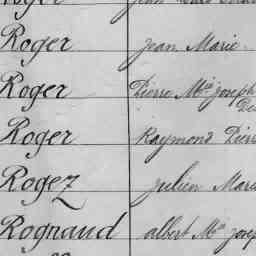 Roger Jean Marie
Roger Pierre Mie Joseph
Roger Raymond Pierr
Rogez Julien Mari
Rognaud Albert Mie Josep